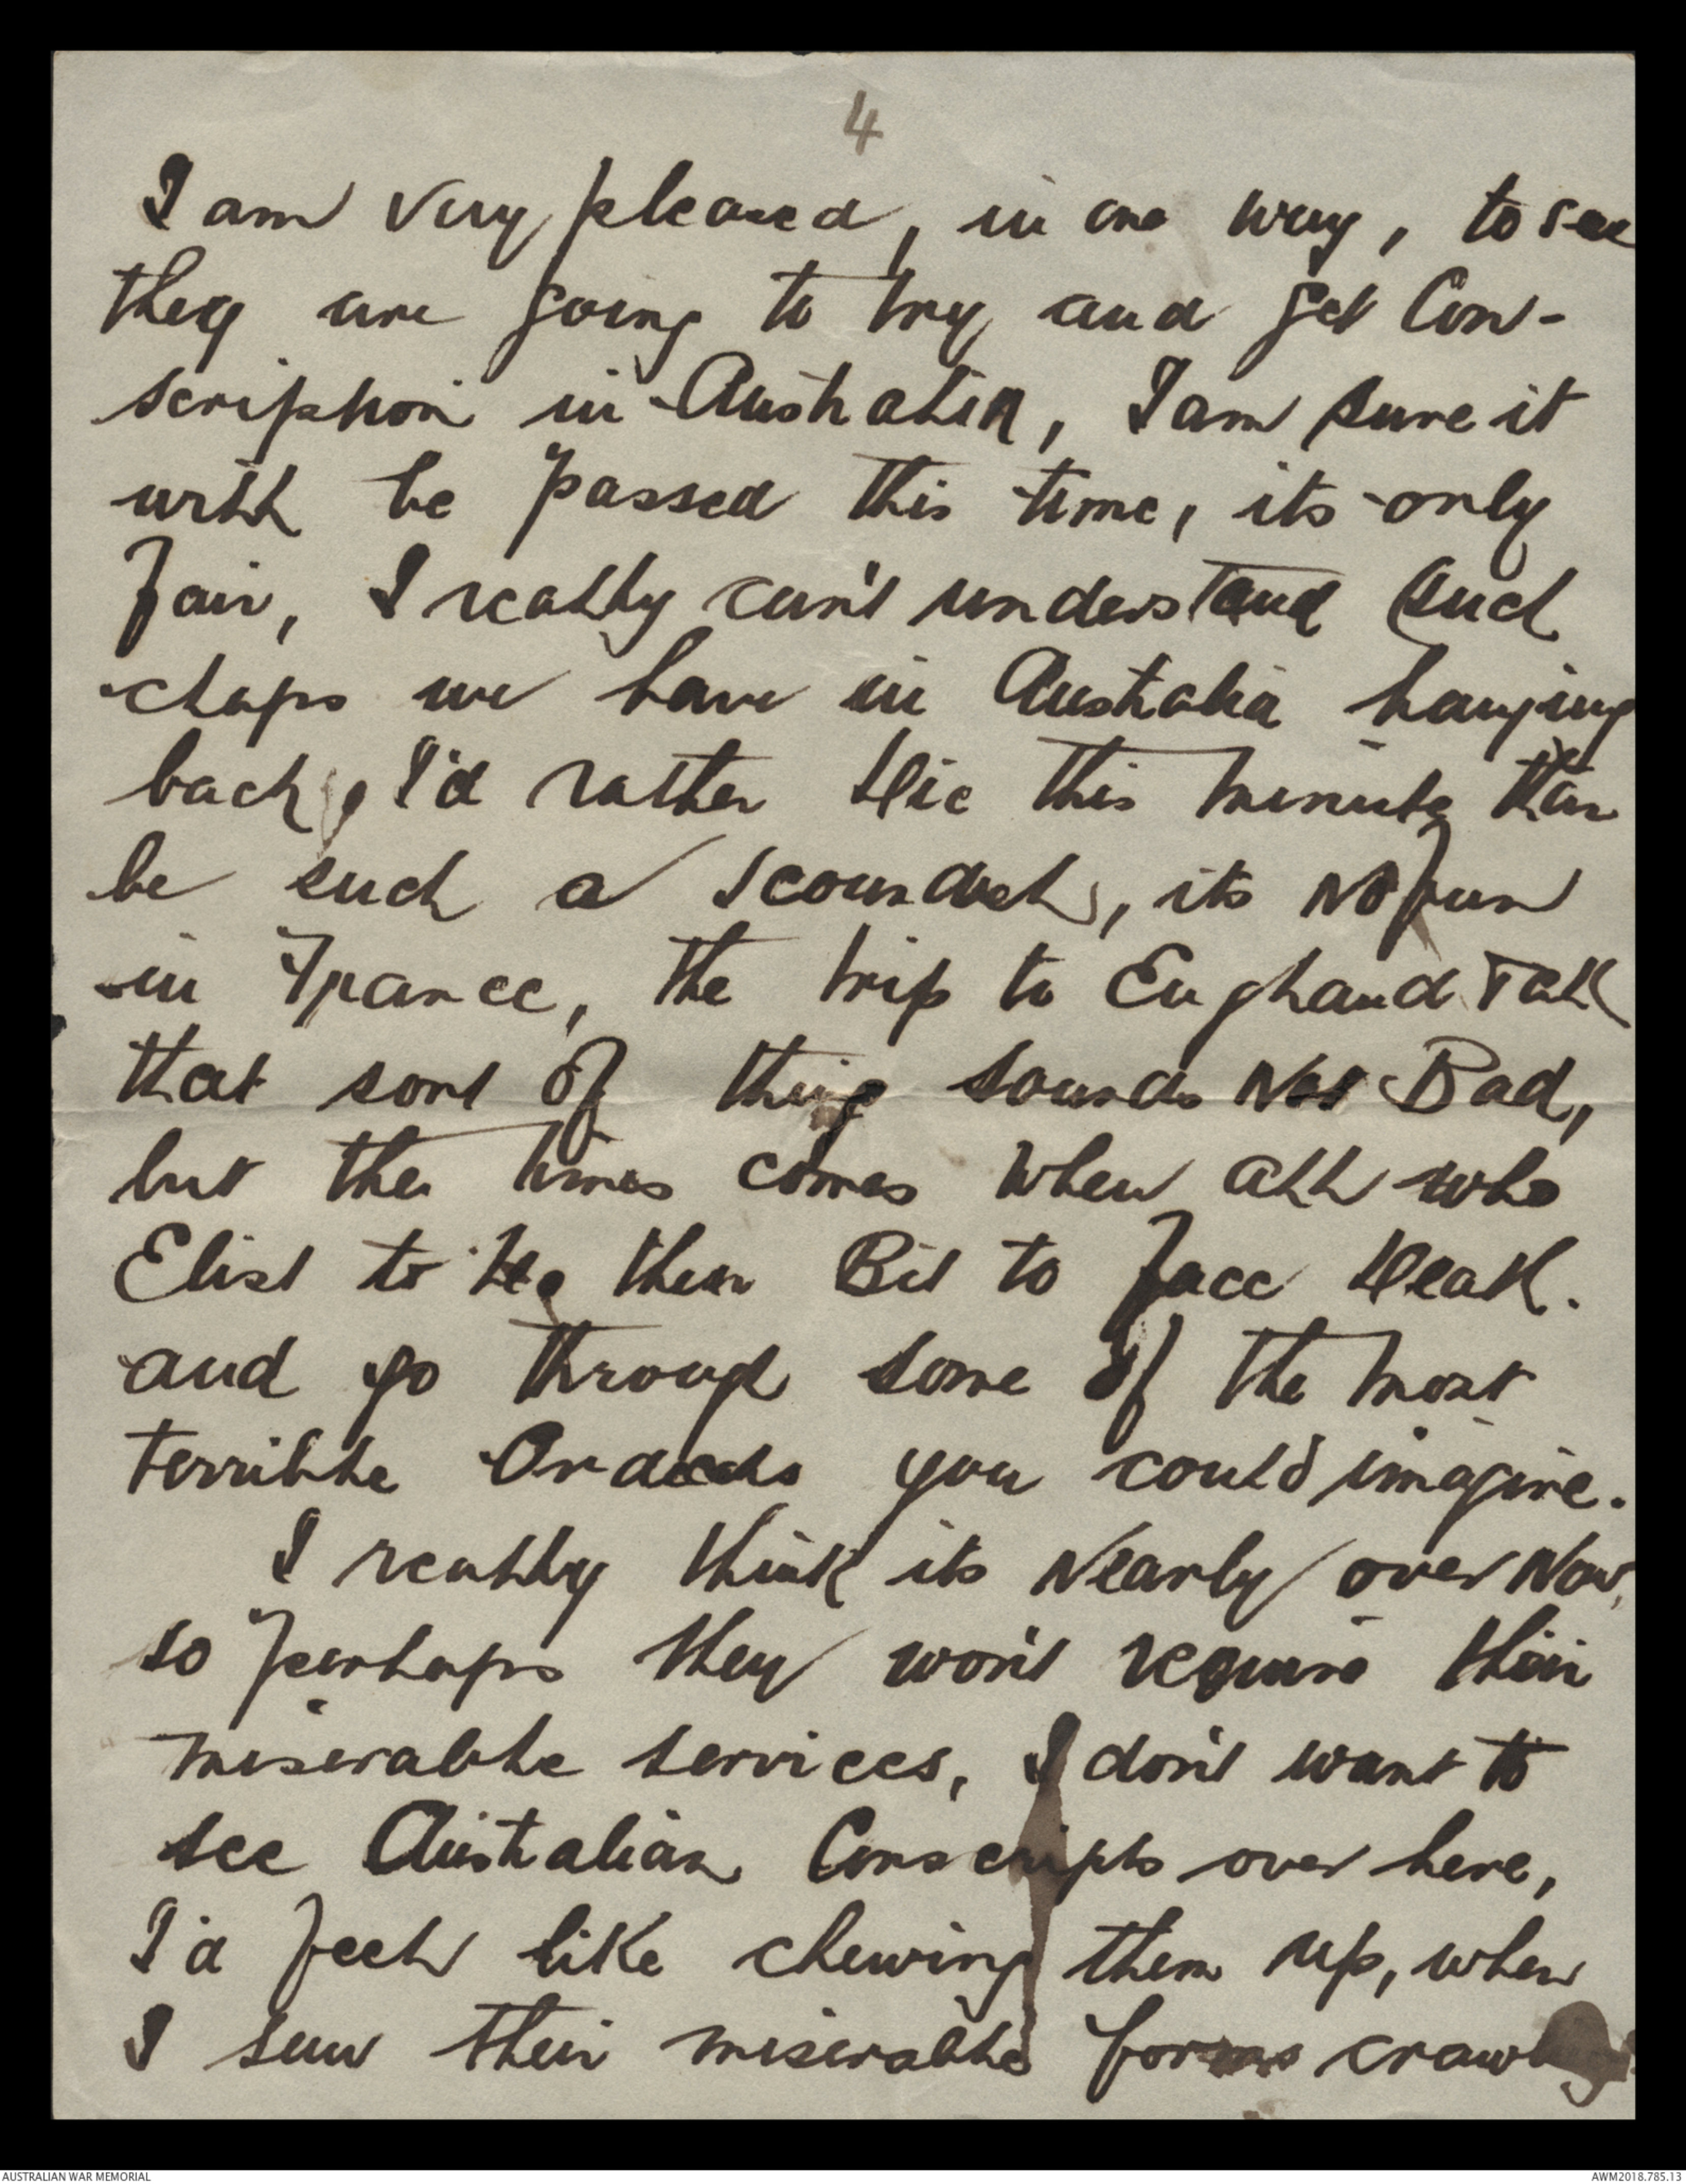 4
I am very pleased, in one way, to see
they are going to try and get Con-
scription in Australia, I am sure it
will be passed this time, its only
fair, I really can't understand such
chaps we have in Australia hanging
back, I'd rather die this minute than
be such a scoundrel, its no fun
in France, the trip to England & all
that sort of thing sounds not Bad,
but the times comes when all who
Elist to do their Bit to face death.
and go through some of the most
terrible Ordeals you could imagine.
I really think its Nearly over Now,
so perhaps they won't require their
miserable services, I don't want to
see Australian Conscripts over here,
I'd feel like chewing them up, when
I saw their miserable forms crawling
AUSTRALIAN WAR MEMORIAL
AWM2018.785.13